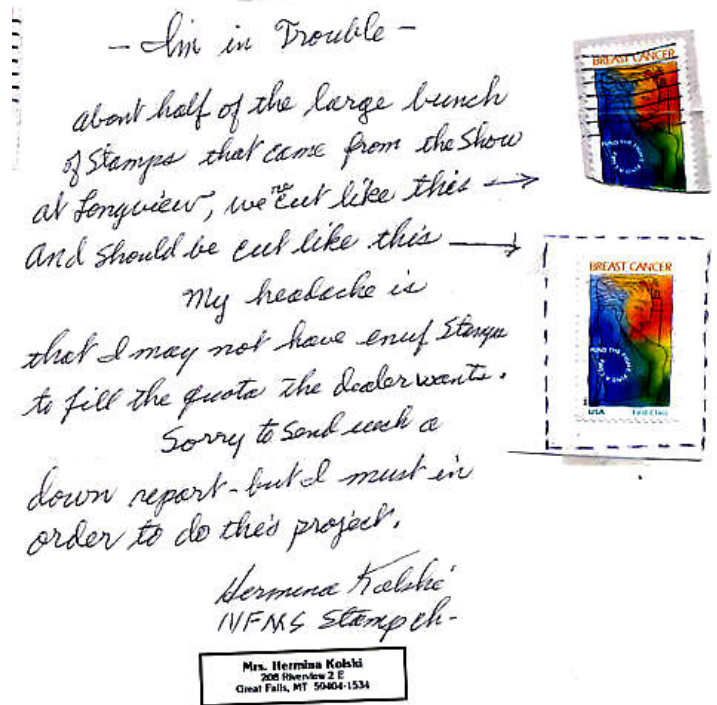 - I'm in Trouble -
about half of the large bunch
of Stamps that came from the Show
at Longview, were cut like this →
And should be cut like this →
My headache is
that I may not have enuf Stamps
to fill the quota the dealer wants.
Sorry to send such a
down report - but I must in
order to do this project.
Hermina Kolski
NFMS Stamp ch-
Mrs. Hermina Kolski
208 Riverview 2 E
Great Falls, MT 59404-1534
BREAST CANCER
FUND THE FIGHT. FIND A CURE
BREAST CANCER
FUND THE FIGHT. FIND A CURE
USA First-Class